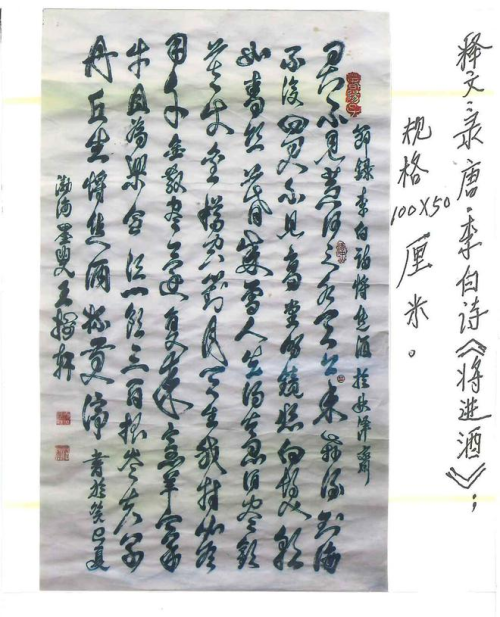 释文:录唐·李白诗《将进酒》;
规格100X50厘米。
節錄李白诗将進酒於
君不见黄河之水天上来奔流到海
不復回君不见高堂明镜悲白髮朝
如青丝暮成雪人生得意须尽欢
莫使金樽空對月天生我材必有
用千金散尽還复来烹羊宰
牛且為樂会须一饮三百杯岑夫子
丹丘生将進酒杯莫停 書於癸巳夏
渤海墨叟王